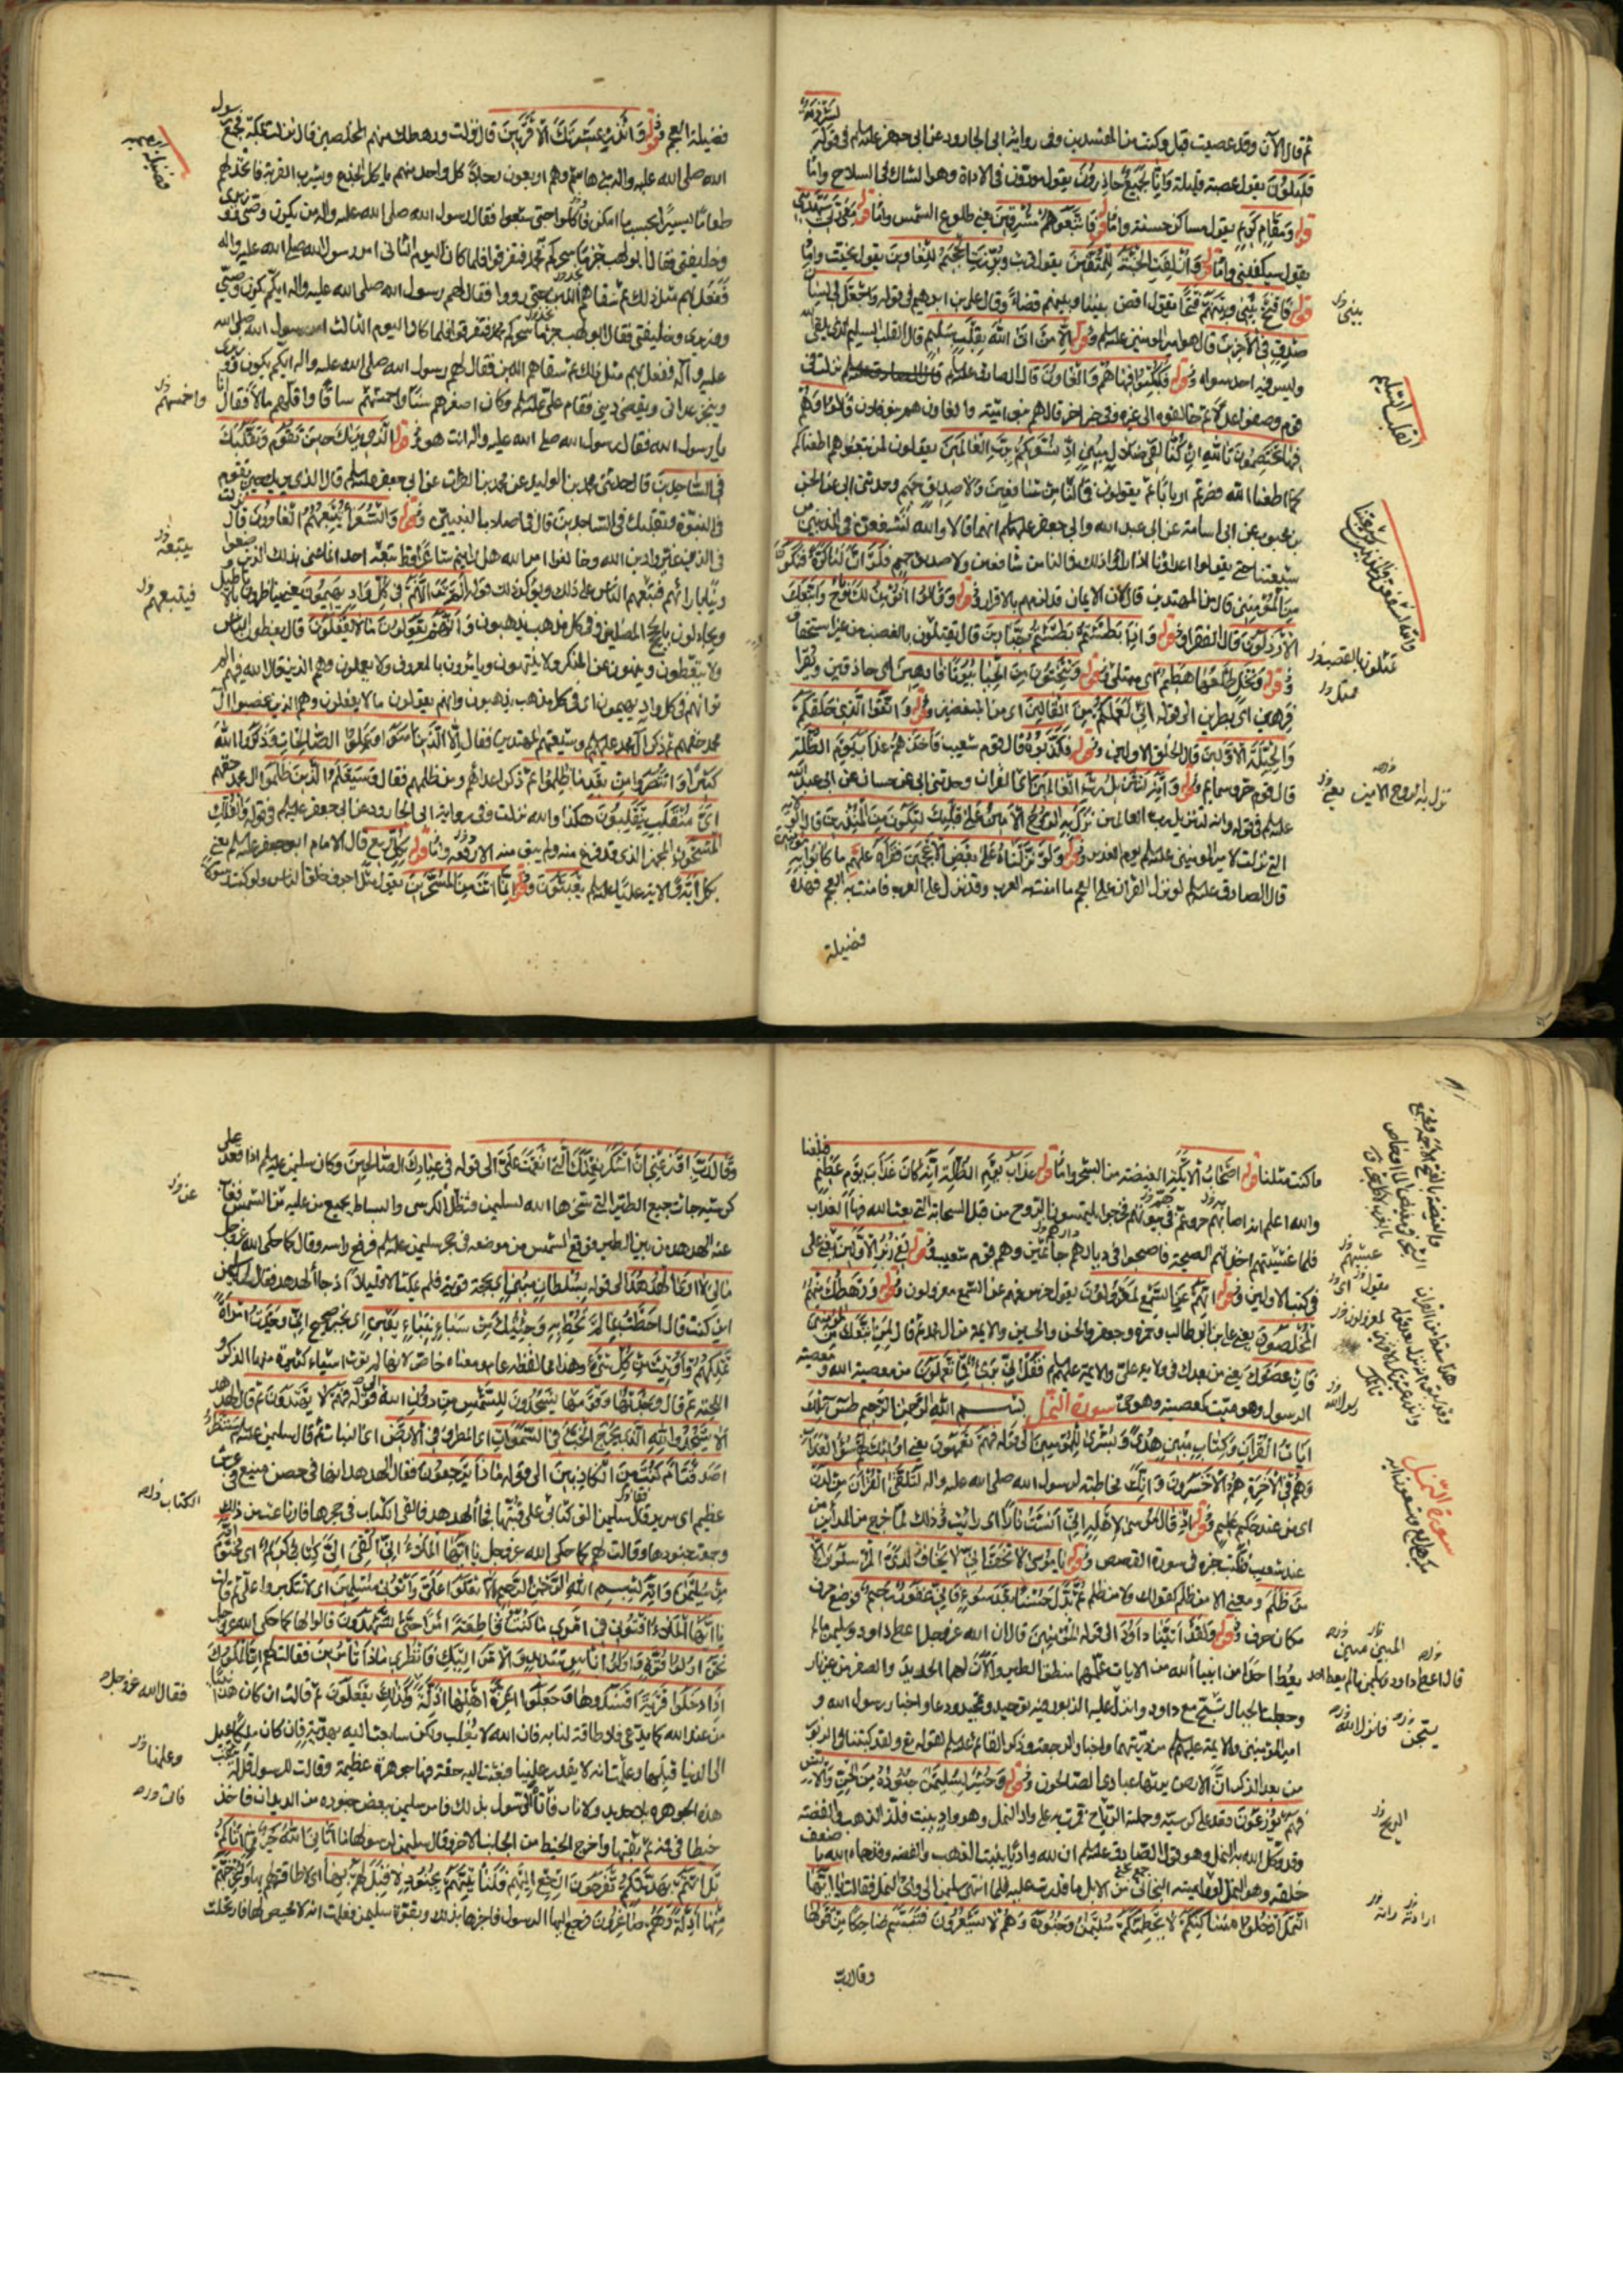 ثم قال الآن وقد عصيت قبل وكنت من المفسدين وفى رواية ابى الجارود عن ابى جعفر عليه السلم فى قوله لشرذمة
قليلون يقول عصبة قليلة وانا لجميع حاذرون يقول مودون فى الاداة وهو الشاك فى السلاح واما
قوله ومقام كريم يقول مساكن حسنة واما قوله فاتبعوهم مشرقين يعنى طلوع الشمس واما قوله معى ربى سيهدين
يقول سيكفينى واما قوله وازلفت الجنة للمتقين يقول قربت وبرزت الجحيم للغاوين يقول نحيت واما
قوله فافتح بينى وبينهم فتحا يقول اقض بينى وبينهم قضاء وقال على بن ابرهيم فى قوله واجعل لى لسان
صدق فى الآخرين قال هو امير المؤمنين عليه السلم وقوله الا من اتى الله بقلب سليم قال القلب السليم الذى يلقى الله
وليس فيه احد سواه وقوله فكبكبوا فيها هم والغاوون قال الصادق عليه السلم نزلت فى
قوم وصفوا عدلا ثم خالفوه الى غيره وفى خبر آخر قال هم بنو امية والغاون هم بنو فلان قالوا وهم
فيها يختصمون تالله ان كنا لفى ضلال مبين اذ نسويكم برب العالمين يقولون لمن تبعوهم اطعناكم
كما اطعنا الله فصرتم اربابا ثم يقولون فما لنا من شافعين ولا صديق حميم وحدثنى ابى عن الحسن
بن محبوب عن ابى اسامة عن ابى عبد الله وابى جعفر عليهم السلم انهما قالا والله لنشفعن فى المذنبين من
شيعتنا حتى يقولوا اعداؤنا اذا رأوا ذلك فما لنا من شافعين ولا صديق حميم فلو ان لنا كرة فنكون
من المؤمنين قال من المهتدين قال لان الايمان قد لزمهم بالاقرار وقوله وقالوا انؤمن لك واتبعك
الارذلون قال الفقراء وقوله واذا بطشتم بطشتم جبارين قال تقتلون بالغضب من غير استحقاق
وقوله ونخل طلعها هضيم اى ممتلئ وقوله وتنحتون من الجبال بيوتا فارهين اى حاذقين ويقرأ
فرهين اى بطرين الى قوله انى لعملكم من القالين اى من المبغضين وقوله واتقوا الذى خلقكم
والجبلة الاولين قال الخلق الاولين وقوله فكذبوه قال قوم شعيب فاخذهم عذاب يوم الظلة
قال يوم حر وسمايم وقوله وانه لتنزيل رب العالمين اى القرآن وحدثنى ابى عن حسان عن ابى عبد الله
عليه السلم فى قوله وانه لتنزيل رب العالمين نزل به الروح الامين على قلبك لتكون من المنذرين قال الولاية
التى نزلت لامير المؤمنين عليه السلم يوم الغدير وقوله ولو نزلناه على بعض الاعجمين فقرأه عليهم ما كانوا به مؤمنين
قال الصادق عليه السلم لو نزل القرآن على العجم ما امنت به العرب وقد نزل على العرب فامنت به العجم فهذه
فضيلة
بينى
القلب السليم
والله لنشفعن فى المذنبين من شيعتنا
تقتلون بالغضب
ممتلئ
نزل به الروح الامين يعنى
فضيلة العجم وقوله وانذر عشيرتك الاقربين قال نزلت ورهطك منهم المخلصين قال نزلت بمكة فجمع رسول
الله صلى الله عليه واله بنى هاشم وهم اربعون رجلا كل واحد منهم ياكل الجذع ويشرب القربة فاتخذ لهم
طعاما يسيرا بحسب ما امكن فاكلوا حتى شبعوا فقال رسول الله صلى الله عليه واله من يكون وصيى ووزيرى
وخليفتى فقال ابو لهب جزما سحركم محمد فتفرقوا فلما كان اليوم الثانى امر رسول الله صلى الله عليه واله
ففعل بهم مثل ذلك ثم سقاهم اللبن حتى رووا فقال لهم رسول الله صلى الله عليه واله ايكم يكون وصيى
ووزيرى وخليفتى فقال ابو لهب جزما سحركم محمد فتفرقوا فلما كان اليوم الثالث امر رسول الله صلى الله
عليه وآله ففعل بهم مثل ذلك ثم سقاهم اللبن فقال لهم رسول الله صلى الله عليه واله ايكم يكون وصيى ووزيرى
وينجز عداتى ويقضى دينى فقام على عليه السلم وكان اصغرهم سنا واحمشهم ساقا واقلهم مالا فقال انا
يا رسول الله فقال رسول الله صلى الله عليه واله انت هو وقوله الذى يريك حين تقوم وتقلبك
فى الساجدين قال حدثنى محمد بن الوليد عن محمد بن الفرات عن ابى جعفر عليه السلم قال الذى يريك حين تقوم
فى النبوة وتقلبك فى الساجدين قال فى اصلاب النبيين وقوله والشعراء يتبعهم الغاوون قال نزلت
فى الذين غيروا دين الله وخالفوا امر الله هل رايتم شاعرا قط تبعه احد انما عنى بذلك الذين وضعوا
دينا بارائهم فتبعهم الناس على ذلك ويؤكد ذلك قوله الم تر انهم فى كل واد يهيمون يعنى يناظرون بالاباطيل
ويجادلون بالحجج المضلين وفى كل مذهب يذهبون وانهم يقولون ما لا يفعلون قال يعظون الناس
ولا يتعظون وينهون عن المنكر ولا ينتهون ويامرون بالمعروف ولا يعملون وهم الذين قال الله فيهم الم
تر انهم فى كل واد يهيمون اى فى كل مذهب يذهبون وانهم يقولون ما لا يفعلون وهم الذين غصبوا آل
محمد حقهم ثم ذكر آل محمد عليهم السلم وشيعتهم المهتدين فقال الا الذين آمنوا وعملوا الصالحات وذكروا الله
كثيرا وانتصروا من بعد ما ظلموا ثم ذكر اعداءهم ومن ظلمهم فقال وسيعلم الذين ظلموا آل محمد حقهم
اى منقلب ينقلبون هكذا والله نزلت وفى رواية ابى الجارود عن ابى جعفر عليه السلم فى قوله الفلك
المشحون المجهز الذى قد فرغ منه ولم يبق منه الا دفعه واما قوله بكل ريع قال الامام ابو جعفر عليه السلم يعنى
بكل طريق آية علينا عليه السلم تعبثون وقوله انما انت من المسحرين يقول مثل اجوف خلق الناس ولو كنت رسولا
واحمشهم
يتبعه
فيتبعهم
ما كنت مثلنا قوله اصحاب الايكة الغيضة من الشجر واما قوله عذاب يوم الظلة انه كان عذاب يوم عظيم فبلغنا
والله اعلم انه اصابهم حر وهم فى بيوتهم فخرجوا يلتمسون الروح من قبل السحابة التى بعث الله فيها العذاب
فلما غشيتهم اخذتهم الصيحة فاصبحوا فى ديارهم جاثمين وهم قوم شعيب وقوله لفى زبر الاولين يعنى
فى كتب الاولين وقوله انهم عن السمع لمعزولون يقول خرس فهم عن السمع معزولون وقوله ورهطك منهم
المخلصون يعنى على بن ابى طالب وحمزة وجعفر والحسن والحسين والايمة من آل محمد ثم قال لمن اتبعك من المؤمنين
فان عصوك يعنى من بعدك فى ولاية على والايمة عليهم السلم فقل انى برئ مما تعملون من معصية الله و
الرسول وهو ميت كمعصيته وهو حى سورة النمل بسم الله الرحمن الرحيم طس تلك
ايات القرآن وكتاب مبين هدى وبشرى للمؤمنين الى قوله فهم يعمهون يعنى اولئك لهم سوء العذاب
وهم فى الاخرة هم الاخسرون وانك مخاطبة لرسول الله صلى الله عليه واله لتلقى القرآن من لدن
اى من عند حكيم عليم وقوله اذ قال موسى لاهله انى انست نارا اى رايت وذلك لما خرج من المداين من
عند شعيب فكتب خبره فى سورة القصص وقوله يا موسى لا تخف انى لا يخاف لدى المرسلون الا
من ظلم ومعنى الا من ظلم كقولك ولا من ظلم ثم بدل حسنا بعد سوء فانى غفور رحيم فوضع حرف
مكان حرف وقوله ولقد آتينا داود الى قوله المؤمنين قال ان الله عز وجل اعطى داود وسليمن ما لم
يعط احدا من انبياء الله من الايات علمهما منطق الطير والان لهما الحديد والصفر من غير نار
وجعلت الجبال يسبح مع داود وانزل عليه الزبور فيه توحيد وتمجيد ودعاء واخبار رسول الله و
امير المؤمنين والايمة عليهم السلم من ذريتهما واخبار الرجعة وذكر القائم عليه السلم لقوله ولقد كتبنا فى الزبور
من بعد الذكر ان الارض يرثها عبادى الصالحون وقوله وحشر لسليمن جنوده من الجن والانس
فهم يوزعون قعد على كرسيه وحملته الرياح فمرت به على واد النمل وهو واد ينبت فلز الذهب والفضة
وقد وكل الله به النمل وهو قول الصادق عليه السلم ان لله واديا ينبت الذهب والفضة وقد حماه الله باضعف
خلقه وهو النمل لو رامته البخاتى من الابل ما قدرت عليه فلما انتهى سليمن الى وادى النمل فقالت نملة يا ايها
النمل ادخلوا مساكنكم لا يحطمنكم سليمن وجنوده وهم لا يشعرون فتبسم ضاحكا من قولها
وقال رب
غشيهم
رسول الله
سورة النمل
المبين مبين
قال اعطى داود وسليمن ما لم يعط احد
يسبحن
فانزل الله
الريح
ارادته رامته
وقال رب اوزعنى ان اشكر نعمتك التى انعمت على الى قوله فى عبادك الصالحين وكان سليمن عليه السلم اذا قعد على
كرسيه جاءت جميع الطير التى سخرها الله لسليمن فتظل الكرسى والبساط بجميع من عليه من الشمس فغاب
عنه الهدهد من بين الطير فوقع الشمس من موضعه فى حجر سليمن عليه السلم فرفع راسه وقال كما حكى الله عز وجل
ما لى لا ارى الهدهد الى قوله بسلطان مبين اى بحجة قوية فلم يمكث الا قليلا اذ جاء الهدهد فقال له سليمن
اين كنت قال احطت بما لم تحط به وجئتك من سبا بنبا يقين اى بخبر صحيح انى وجدت امرأة
تملكهم واوتيت من كل شئ وهذا مما لفظه عام ومعناه خاص لانها لم تؤت اشياء كثيرة منها الذكر و
اللحية ثم قال وجدتها وقومها يسجدون للشمس من دون الله الى قوله فهم لا يهتدون ثم قال الهدهد
الا يسجدوا لله الذى يخرج الخبء فى السموات اى المطر وفى الارض اى النبات ثم قال سليمن عليه السلم سننظر
اصدقت ام كنت من الكاذبين الى قوله ماذا يرجعون فقال الهدهد انها فى حصن منيع فى عرش
عظيم اى سرير قال سليمن الق كتابى على قبتها فجاء الهدهد فالقى الكتاب فى حجرها فارتاعت من ذلك
وجمعت جنودها وقالت لهم كما حكى الله عز وجل يا ايها الملاء انى القى الى كتاب كريم اى مختوم
من سليمن وانه بسم الله الرحمن الرحيم الا تعلوا على وأتونى مسلمين اى لا تتكبروا على ثم قالت
يا ايها الملاء افتونى فى امرى ما كنت قاطعة امرا حتى تشهدون قالوا لها كما حكى الله عز وجل
نحن اولوا قوة واولوا باس شديد والامر اليك فانظرى ماذا تأمرين فقالت لهم ان الملوك
اذا دخلوا قرية افسدوها وجعلوا اعزة اهلها اذلة وكذلك يفعلون ثم قالت ان كان هذا نبيا
من عند الله كما يدعى فلا طاقة لنا به فان الله لا يغلب ولكن سابعث اليه بهدية فان كان ملكا يميل
الى الدنيا قبلها وعلمت انه لا يقدر علينا فبعثت اليه حقة فيها جوهرة عظيمة وقالت للرسول قل له يثقب
هذه الجوهرة بلا حديد ولا نار فاتاه الرسول بذلك فامر سليمن بعض جنوده من الديدان فاخذ
خيطا فى فمه ثم ثقبها واخرج الخيط من الجانب الاخر وقال سليمن لرسولها فما آتانى الله خير مما آتاكم
بل انتم بهديتكم تفرحون ارجع اليهم فلنأتينهم بجنود لا قبل لهم بها اى لا طاقة لهم بها ولنخرجنهم
منها اذلة وهم صاغرون فرجع اليها الرسول فاخبرها بذلك وبقوة سليمن فعلمت انه لا محيص لها فارتحلت
الكتاب
فقال الله عز وجل
وعلمنا